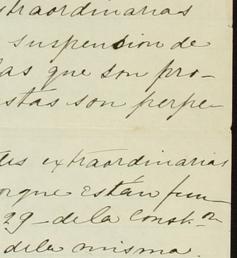 traordinarias
suspension de
las que son pro-
stas son perpe
des extraordinarias
orque están fun
29 de la Const.on
de la misma.